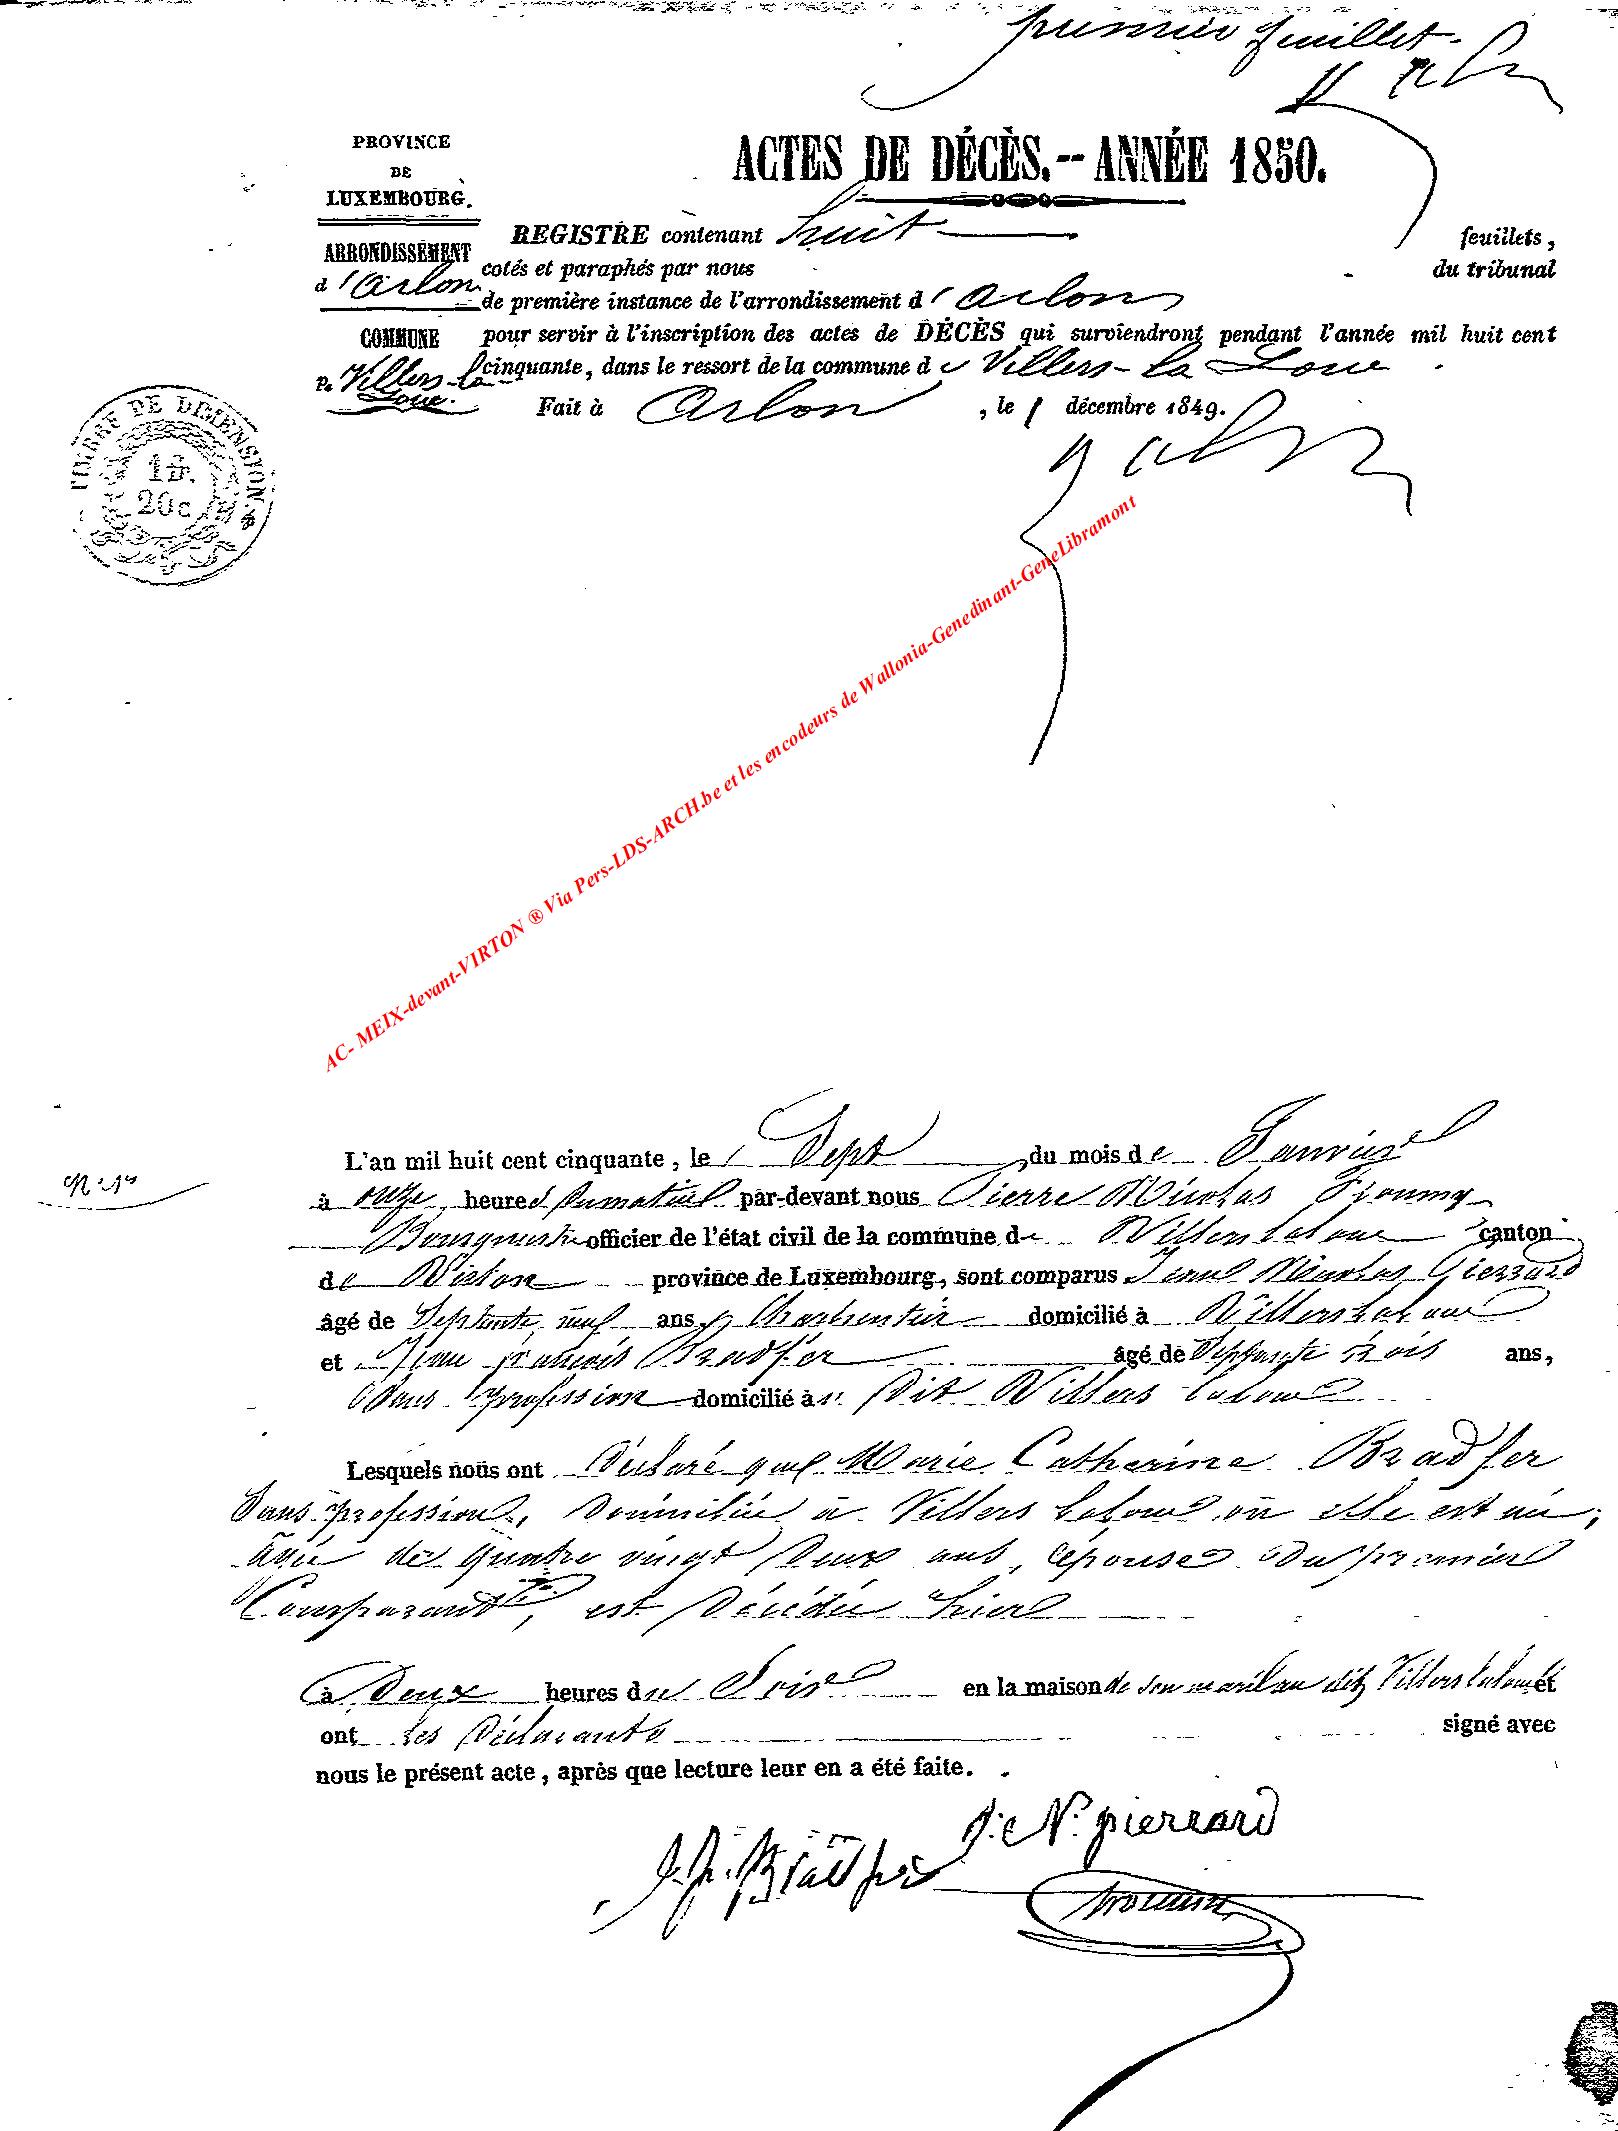 premier feuillet.
PROVINCE
DE
LUXEMBOURG.
ARRONDISSEMENT
d'Arlon
COMMUNE
De Villers-la
Loue.
TIMBRE DE DIMENSION.
1 fr.
20 c
ACTES DE DÉCÈS.-- ANNÉE 1850.
REGISTRE contenant huit feuillets,
cotés et paraphés par nous du tribunal
de première instance de l'arrondissement d'Arlon
pour servir à l'inscription des actes de DÉCÈS qui surviendront pendant l'année mil huit cent
cinquante, dans le ressort de la commune de Villers-la Loue.
Fait à Arlon, le 1 décembre 1849.
AC- MEIX-devant-VIRTON ® Via Pers-LDS-ARCH.be et les encodeurs de Wallonia-Genedinant-GeneLibramont
N° 1er
L'an mil huit cent cinquante, le Sept du mois de Janvier
à onze heures du matin par-devant nous Pierre Nicolas
Bourgmestre officier de l'état civil de la commune de Villers laloue canton
de Virton province de Luxembourg, sont comparus Jean Nicolas Pierrard
âgé de Septante neuf ans, Charpentier domicilié à Villers laloue
et Jean françois Bradfer âgé de Septante trois ans,
Sans profession domicilié au dit Villers laloue
Lesquels nous ont Déclaré que Marie Catherine Bradfer
Sans profession, Domiciliée à Villers laloue où elle est née,
âgée de quatre vingt Deux ans, épouse du premier
Comparant, est Décédée hier
à Deux heures du Soir en la maison de son mari au dit Villers laloue et
ont les Déclarants signé avec
nous le présent acte, après que lecture leur en a été faite.
J: N. pierrard
J. f. Bradfer